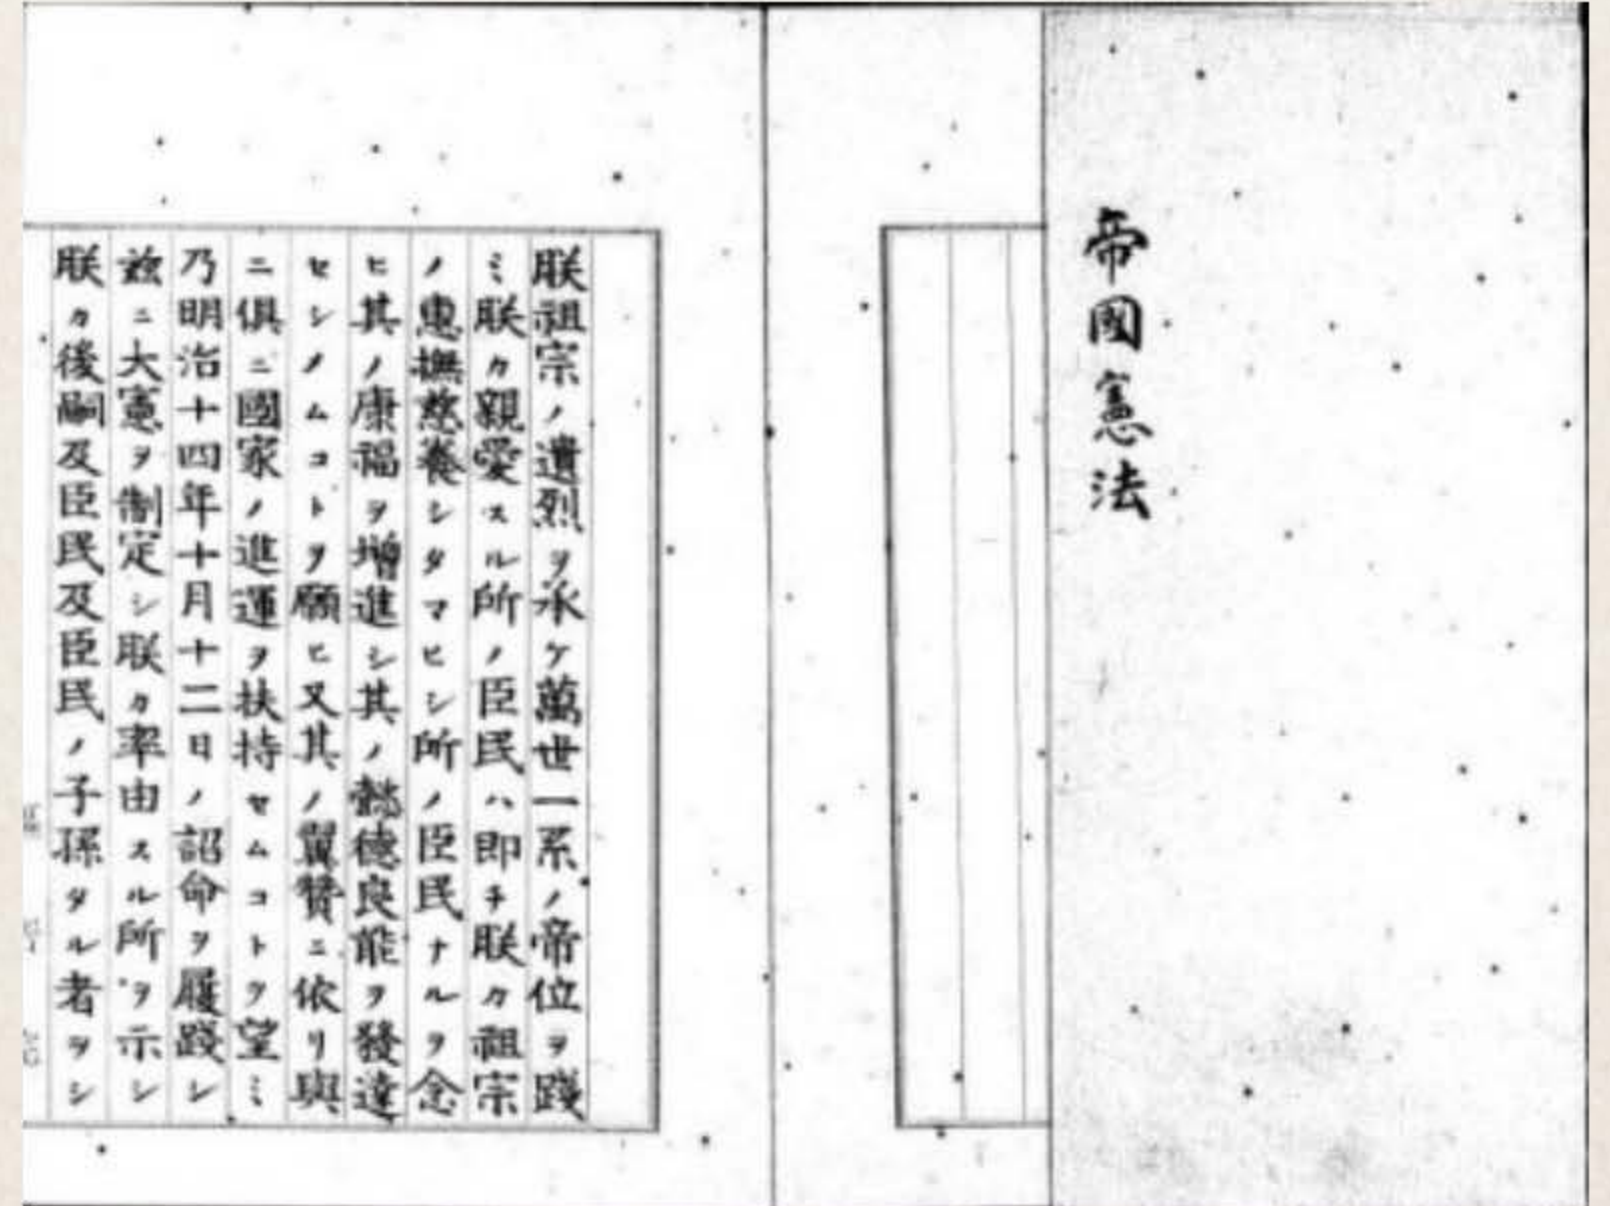 帝國憲法
朕祖宗ノ遺烈ヲ承ケ萬世一系ノ帝位ヲ踐
ミ朕カ親愛スル所ノ臣民ハ即チ朕カ祖宗
ノ惠撫慈養シタマヒシ所ノ臣民ナルヲ念
ヒ其ノ康福ヲ増進シ其ノ懿德良能ヲ發達
セシメムコトヲ願ヒ又其ノ翼贊ニ依リ與
ニ俱ニ國家ノ進運ヲ扶持セムコトヲ望ミ
乃明治十四年十月十二日ノ詔命ヲ履踐シ
玆ニ大憲ヲ制定シ朕カ率由スル所ヲ示シ
朕カ後嗣及臣民及臣民ノ子孫タル者ヲシ